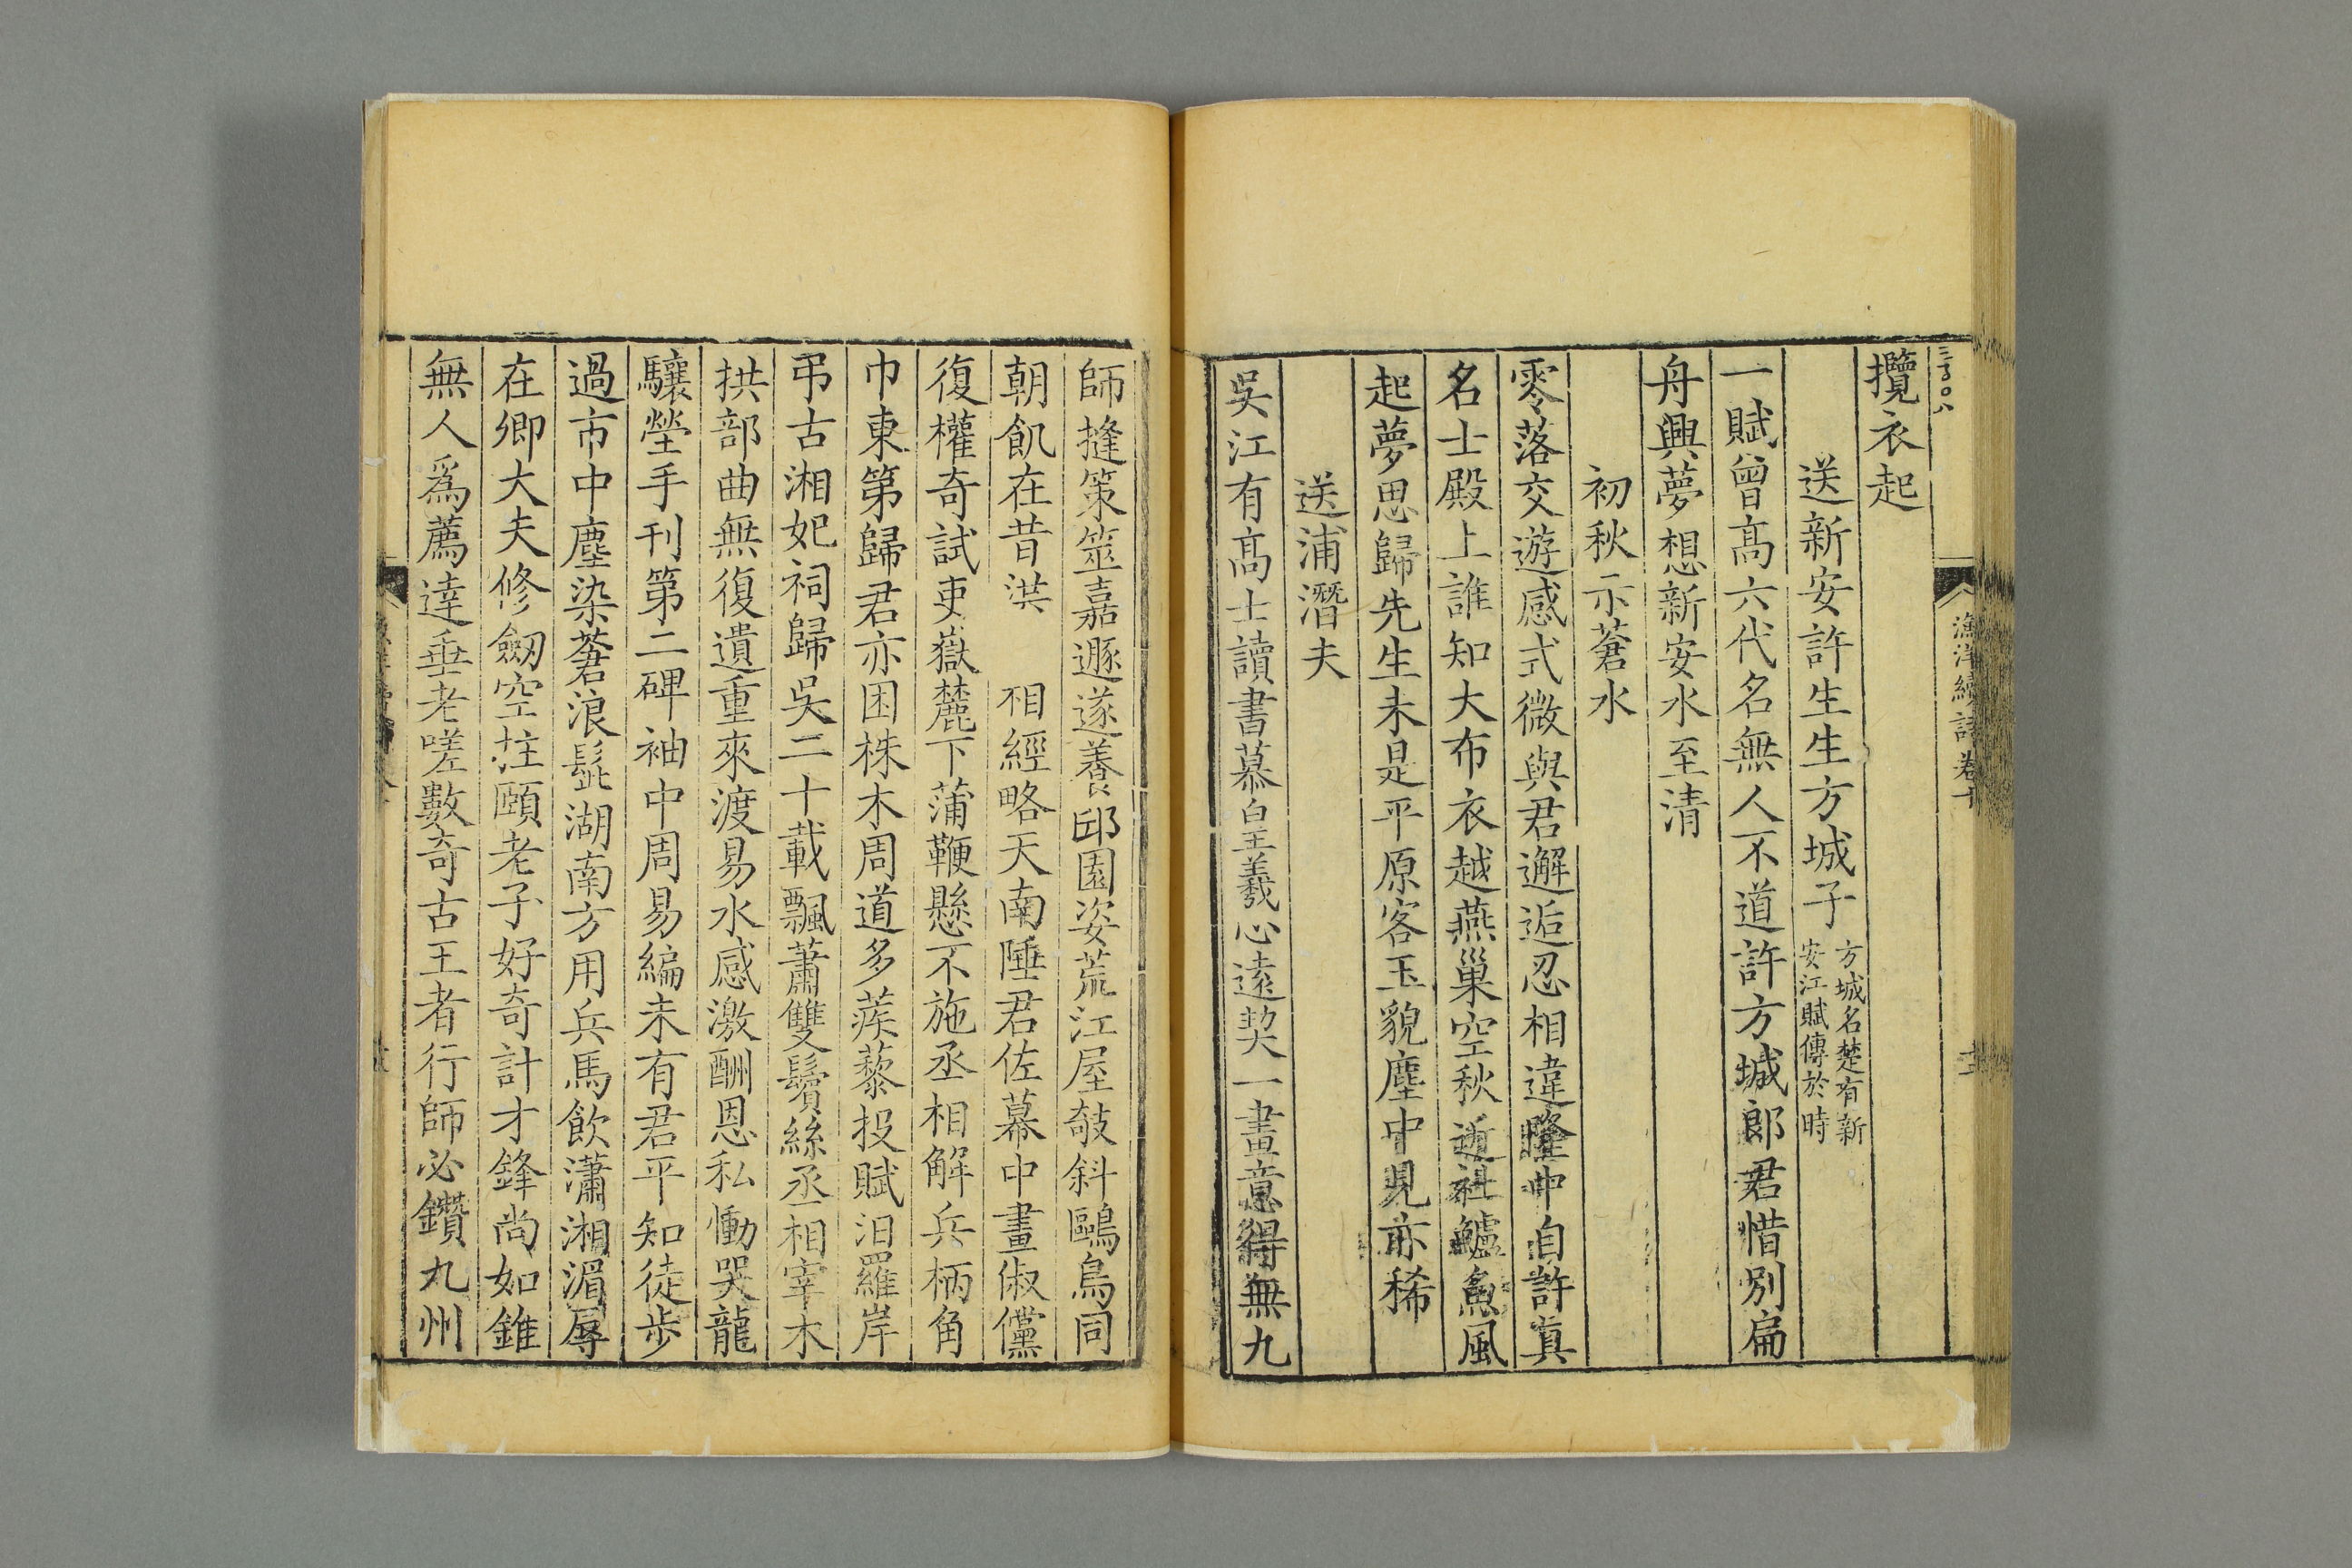 漁洋續詩卷十
攬衣起
送新安許生生方城子
方城名楚有新
安江賦傳於時
一賦曾高六代名無人不道許方城郎君惜別扁
舟興夢想新安水至清
初秋示蒼水
零落交遊感式微與君邂逅忍相違隆中自許眞
名士殿上誰知大布衣越燕巢空秋逝社鱸魚風
起夢思歸先生未是平原客玉貌塵中見亦稀
送浦潛夫
吳江有高士讀書慕皇羲心遠契一畫意得無九
師揲策筮嘉遯遂養邱園姿荒江屋攲斜鷗鳥同
朝飢在昔洪 相經略天南陲君佐幕中畫俶儻
復權奇試吏嶽麓下蒲鞭懸不施丞相解兵柄角
巾東第歸君亦困株木周道多蒺藜投賦汨羅岸
弔古湘妃祠歸吳二十載飄蕭雙鬢絲丞相宰木
拱部曲無復遺重來渡易水感激酬恩私慟哭龍
驤塋手刊第二碑袖中周易編未有君平知徒步
過市中塵染蒼浪髭湖南方用兵馬飲瀟湘湄辱
在卿大夫修劒空拄頤老子好奇計才鋒尚如錐
無人爲薦達垂老嗟數奇古王者行師必鑽九州